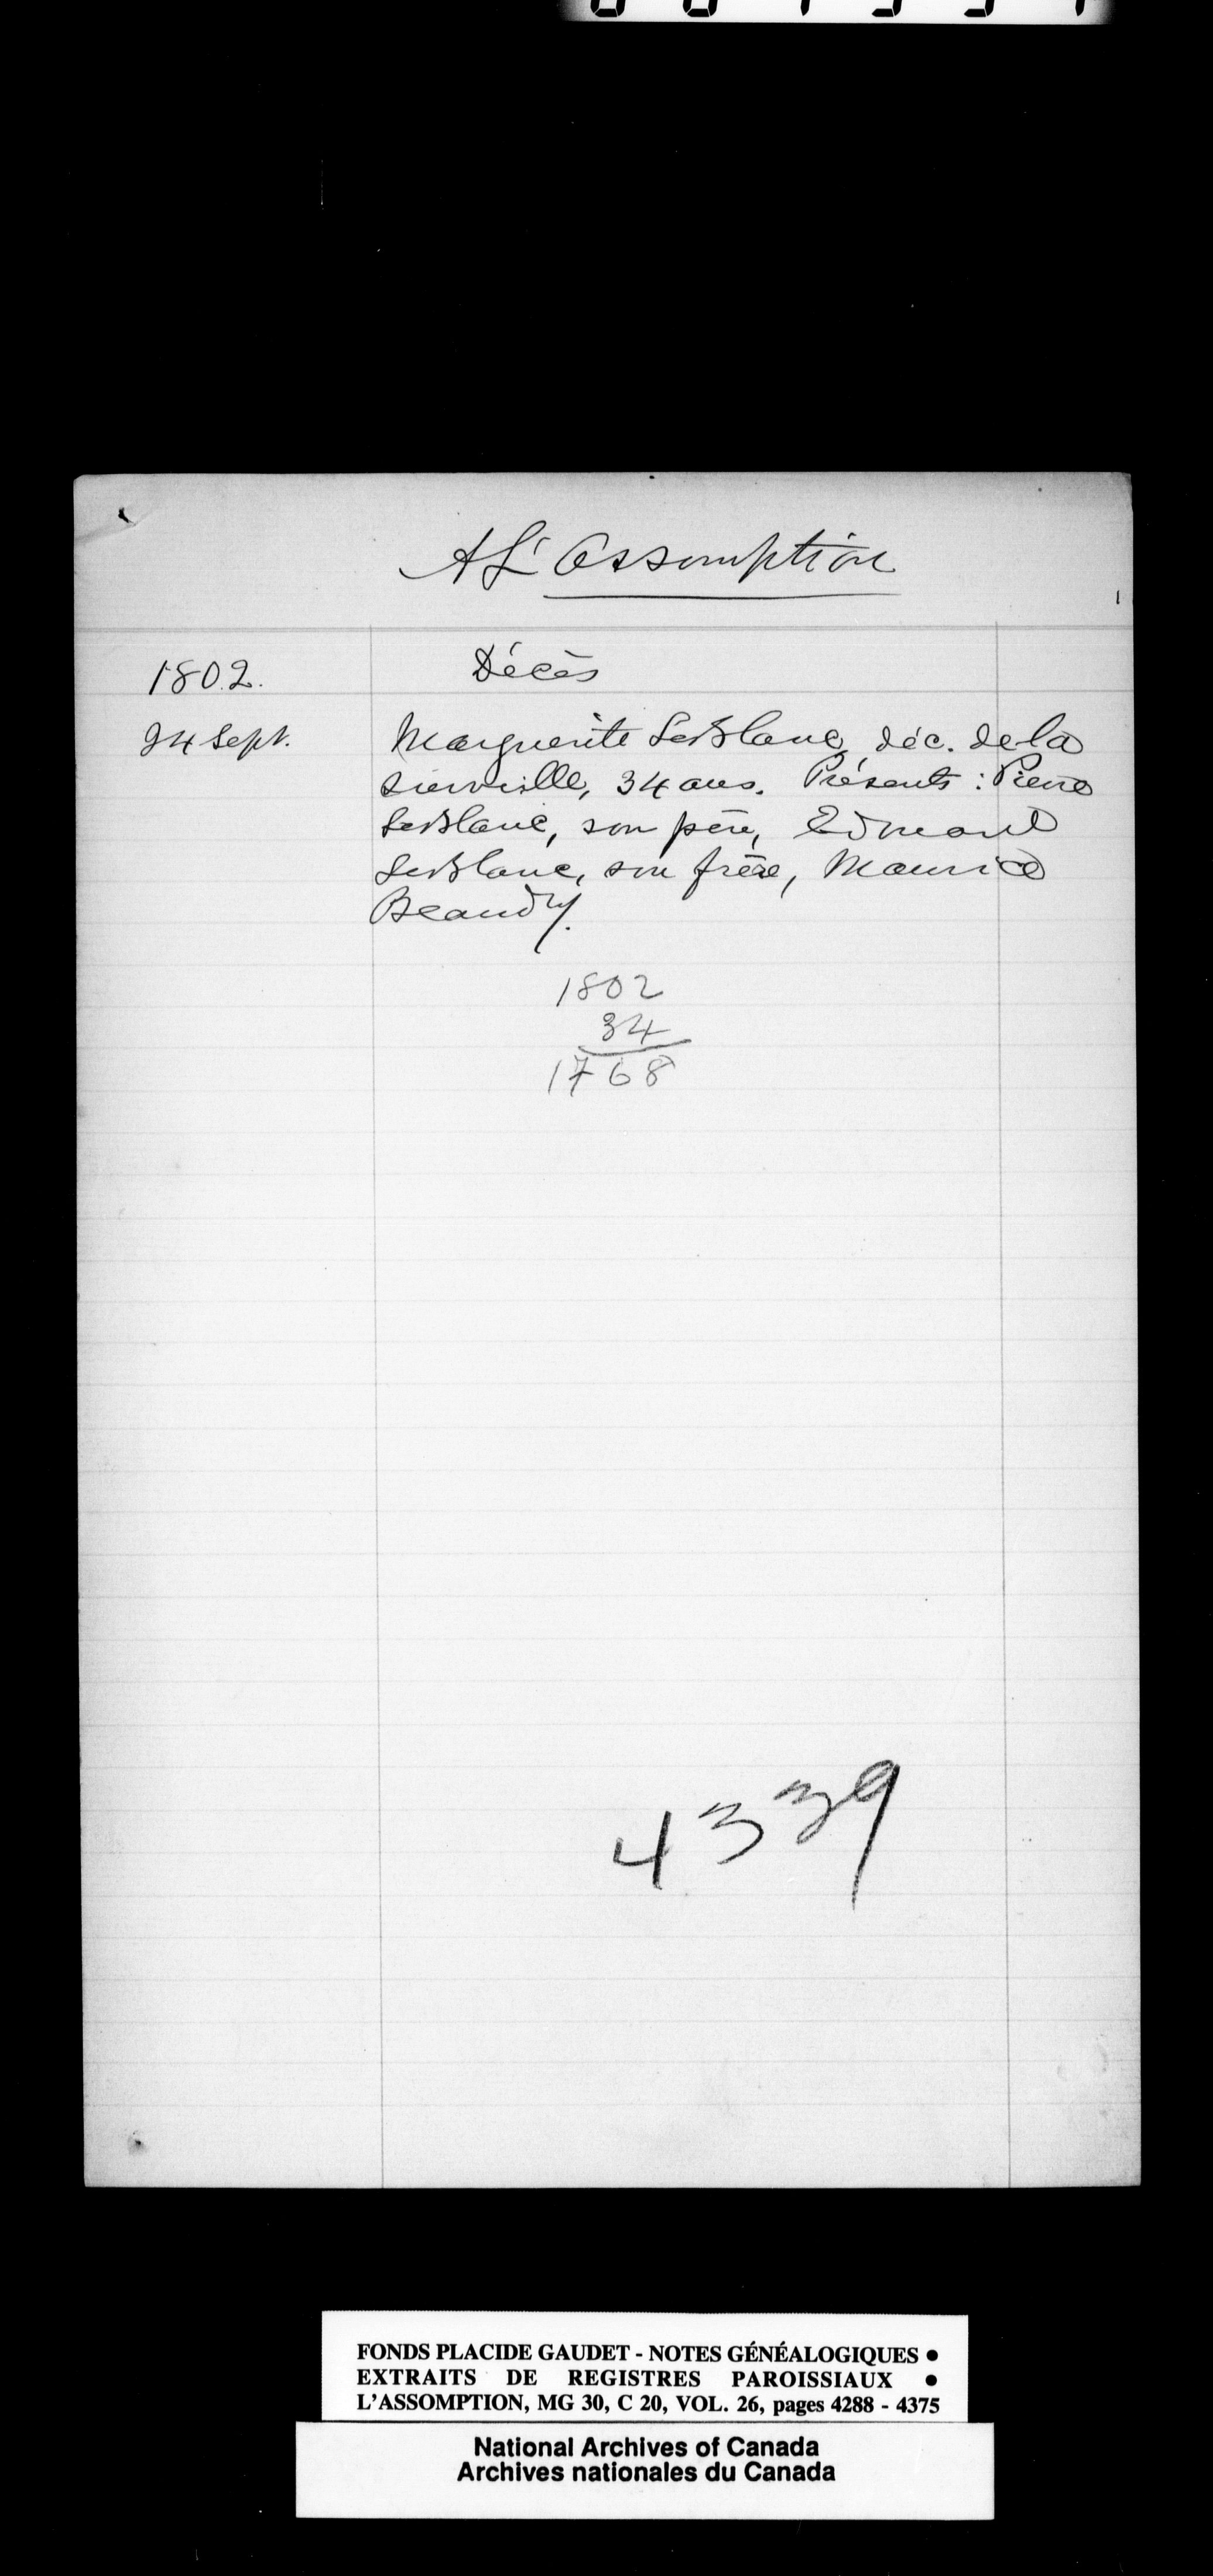 A L'Assomption
1802. Décès
24 Sept. Marguerite LeBlanc, déc. de la
surveille, 34 ans. Présents : Pierre
LeBlanc, son père, Edmond
LeBlanc, son frère, Maurice
Beaudry.
1802
34
1768
4339
FONDS PLACIDE GAUDET - NOTES GÉNÉALOGIQUES ●
EXTRAITS DE REGISTRES PAROISSIAUX ●
L'ASSOMPTION, MG 30, C 20, VOL. 26, pages 4288 - 4375
National Archives of Canada
Archives nationales du Canada